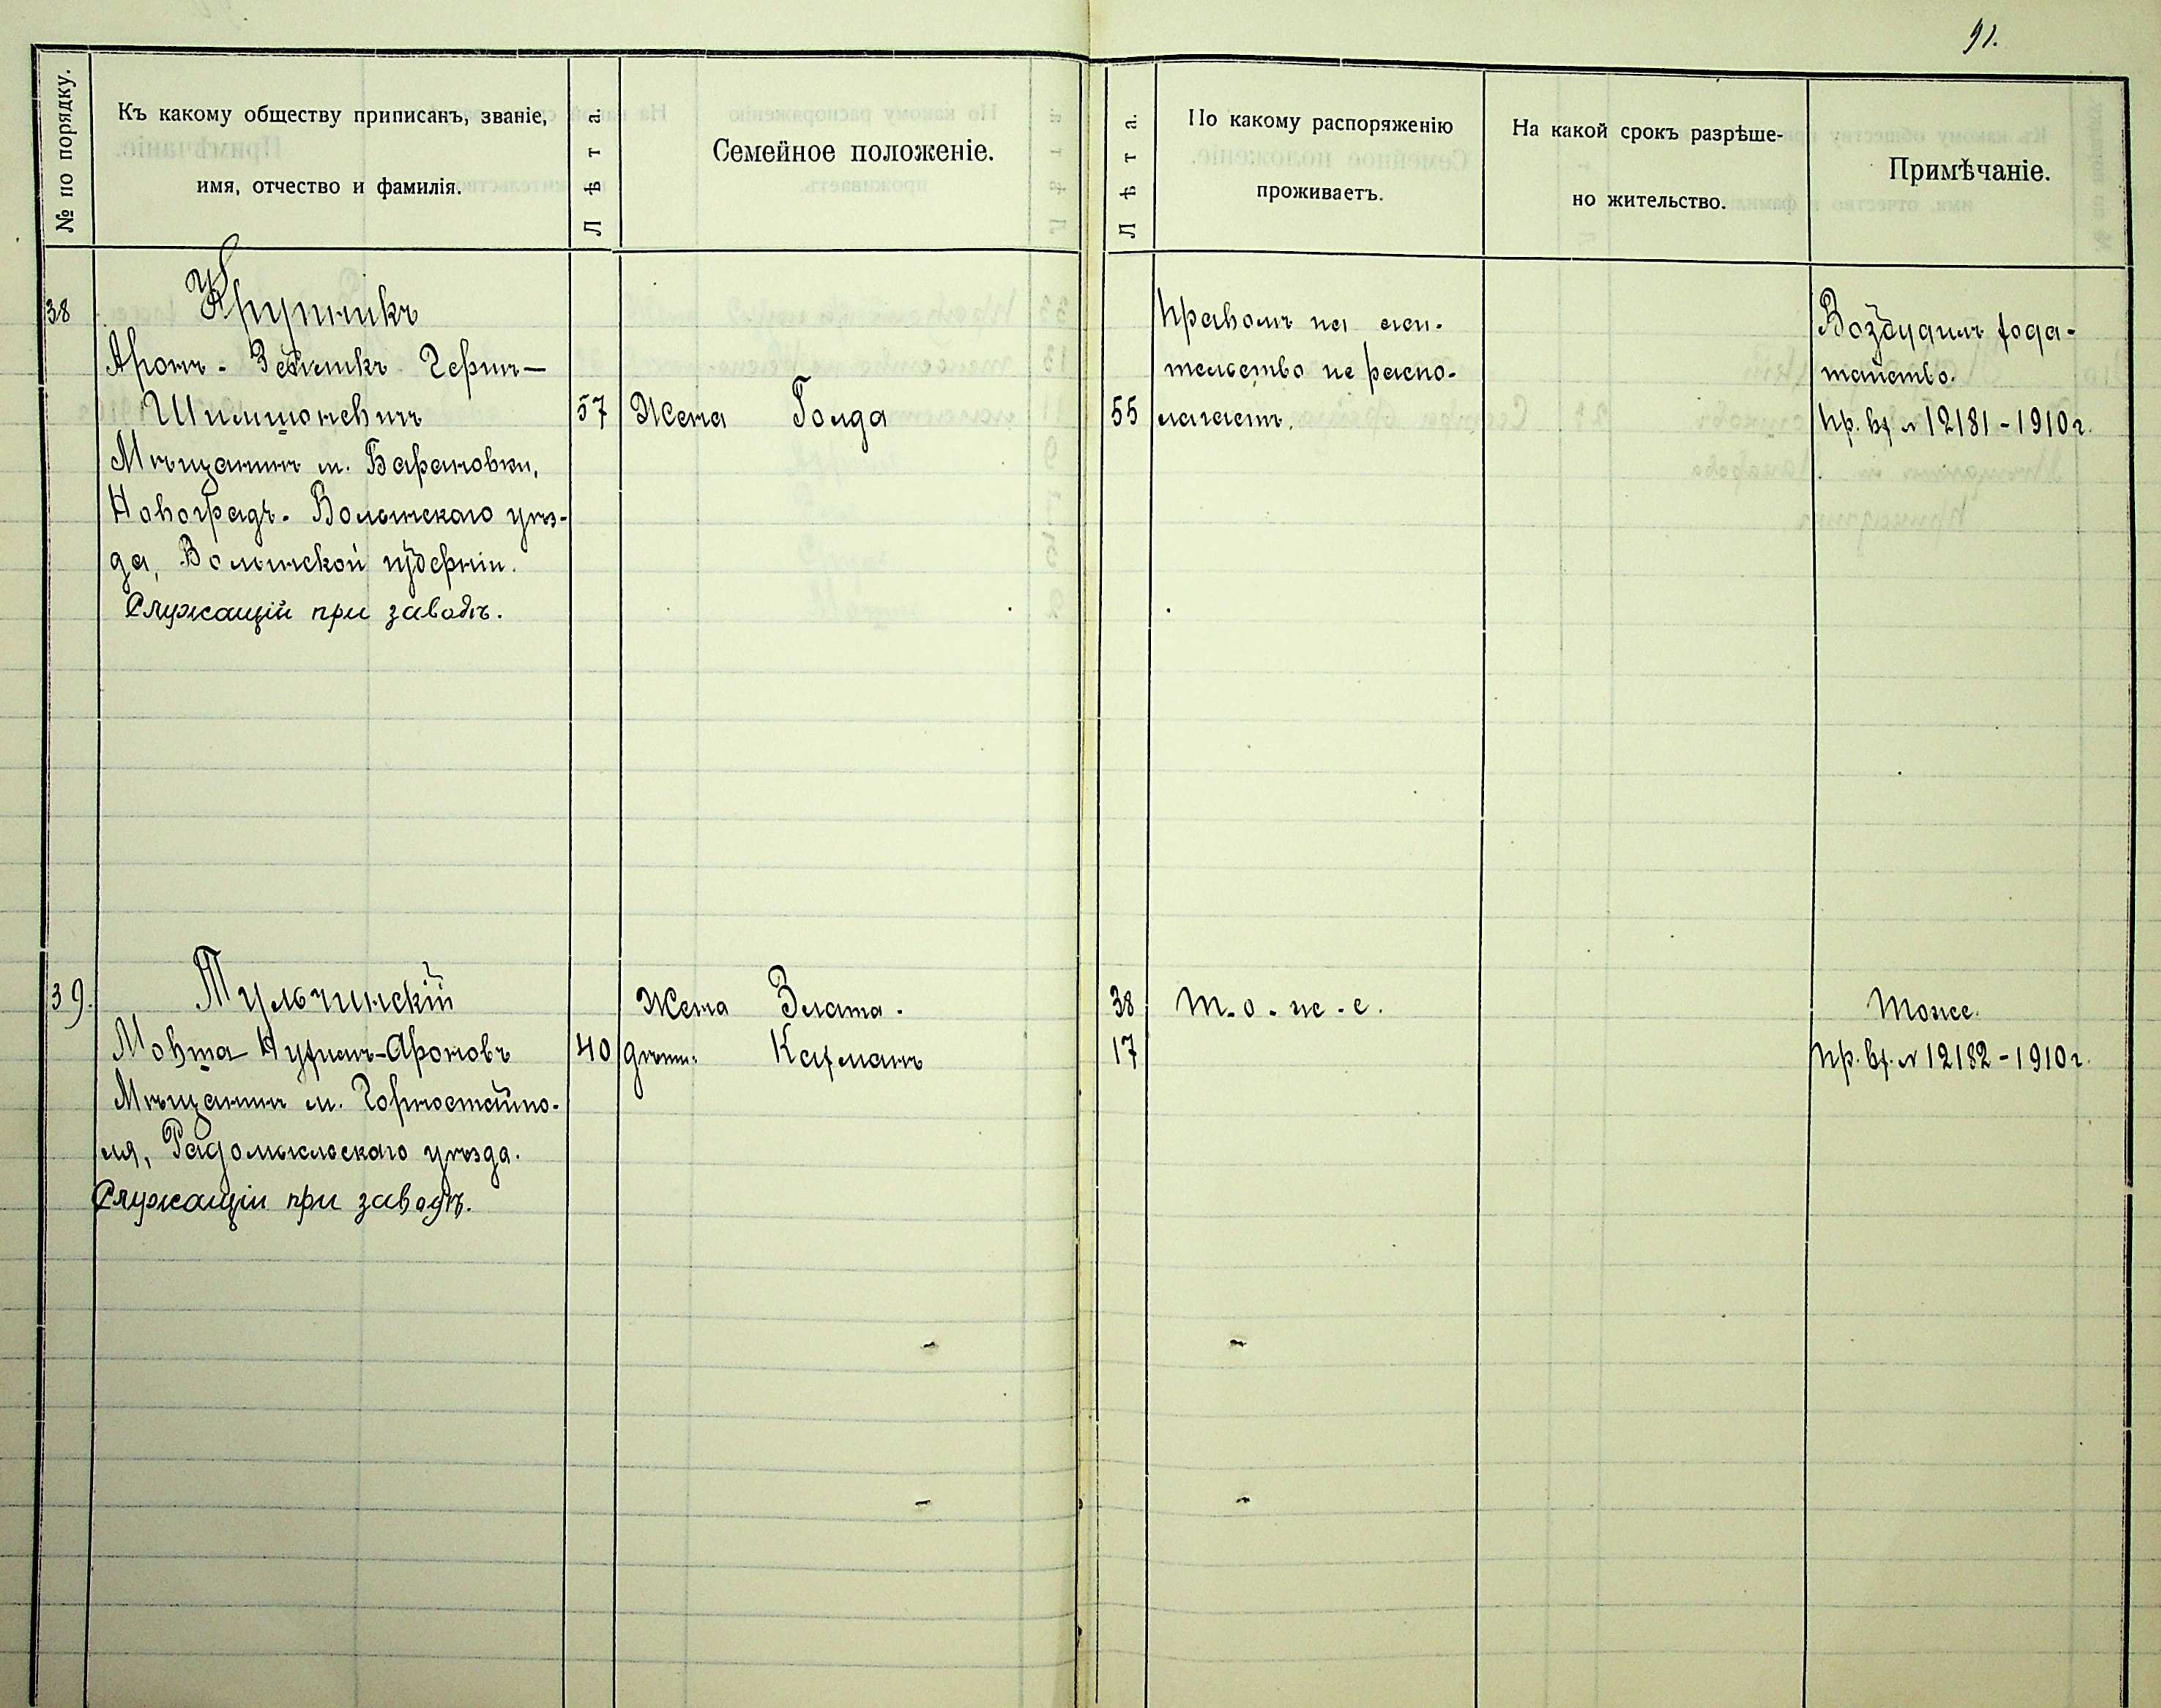 91.
№ по порядку.
Къ какому обществу приписанъ, званіе,
имя, отчество и фамилія.
Лѣта.
Семейное положеніе.
Лѣта.
По какому распоряженію
проживаетъ.
На какой срокъ разрѣше-
но жительство.
Примѣчаніе.
38
Крупникъ
Аронъ-Зейликъ Герш-
Шимшоновичъ
57
Мѣщанинъ м. Барановки,
Новоградъ-Волынскаго уѣз-
да, Волынской губерніи.
Служащій при заводѣ.
Жена Голда
55
Правомъ на жи-
тельство не распо-
лагаетъ.
Возбудилъ хода-
тайство.
Пр. вх. № 12181-1910 г.
39.
Тульчинскій
Мовша Нухимъ-Ароновъ
40
Мѣщанинъ м. Горностайпо-
ля, Радомысльскаго уѣзда.
Служащій при заводѣ.
Жена Злата.
38
дѣти: Кахманъ
17
Т-о-ж-е.
Тоже.
Пр. вх. № 12182-1910 г.